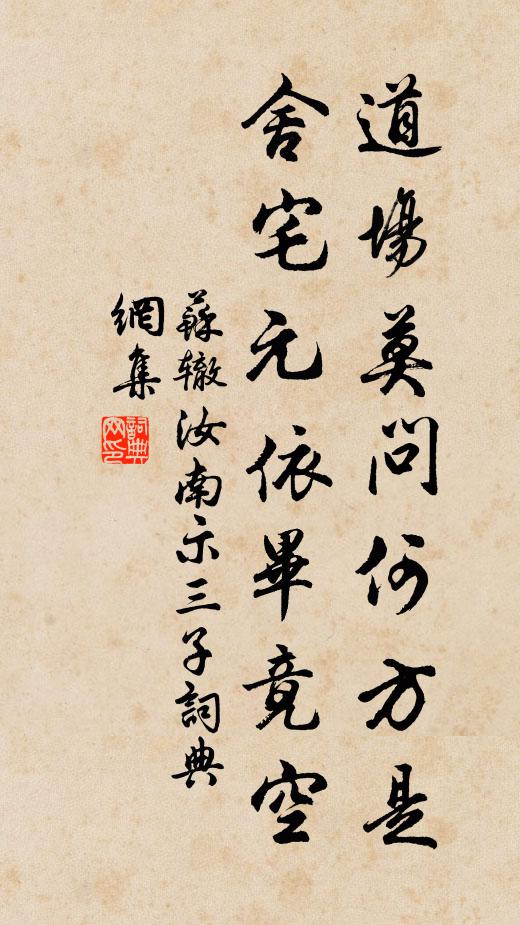 道場莫問何方是
舍宅元依畢竟空
蘇辙汝南示三子詞典
網集
詞典
网印